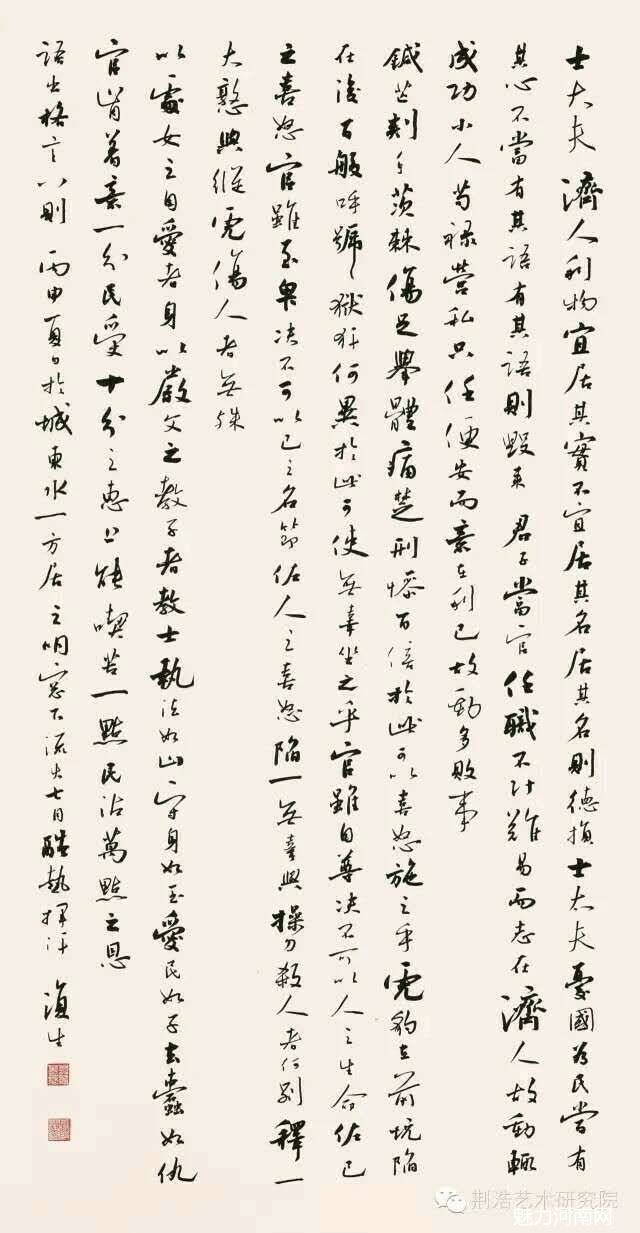 士大夫濟人利物宜居其實不宜居其名居其名則德損士大夫憂國為民當有
其心不當有其語有其語則毀來君子當官任職不計難易而志在濟人故動輒
成功小人苟祿營私只任便安而意在利己故動多敗事
鍼芒刺手茨棘傷足舉體痛楚刑慘百倍於此可以喜怒施之乎虎豹在前坑陷
在後百般呼號獄犴何異於此可使無辜坐之乎官雖自尊決不可以人之生命佐己
之喜怒官雖至卑決不可以己之名節佐人之喜怒陷一無辜與操刀殺人者何別釋一
大憝與縱虎傷人者無殊
以處女之自愛者身以嚴父之教子者教士執法如山守身如玉愛民如子去蠹如仇
官肯著意一分民受十分之惠上能喫苦一點民沾萬點之恩
語出格言八則丙申夏日於城東水一方居之明窗下流火七月酷熱揮汗
荆浩艺术研究院
魅力河南网